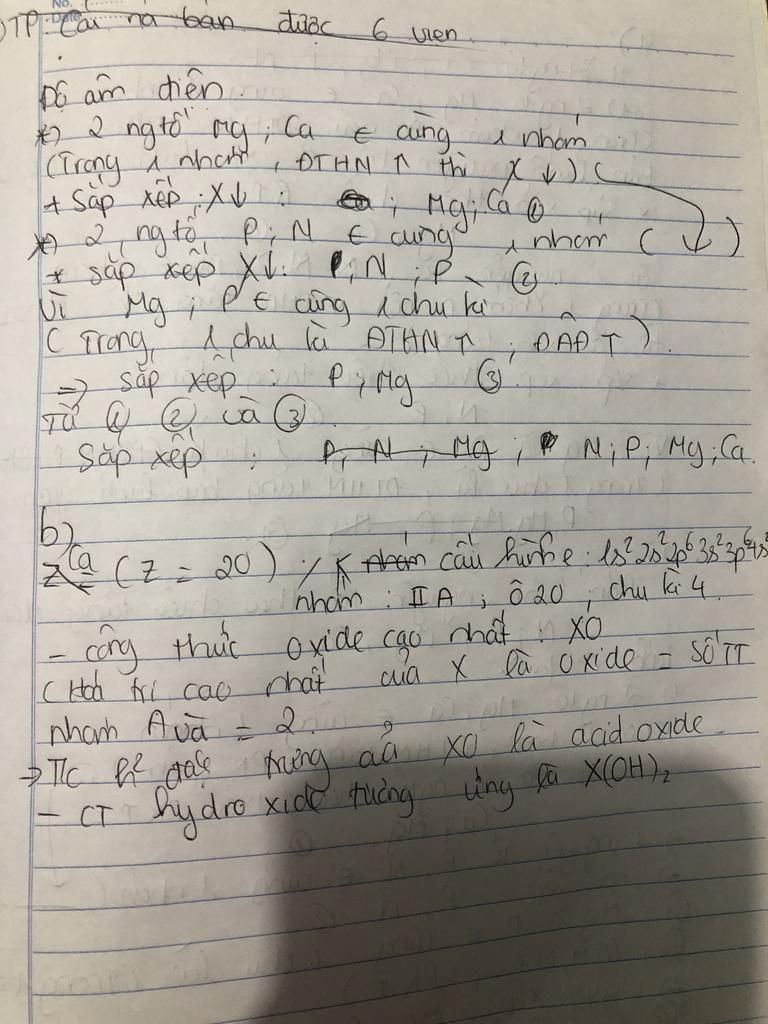 No.
Date
OTP Cái na bạn được 6 viên
Độ âm điện
*) 2 ng tố Mg ; Ca ∈ cùng 1 nhóm
(Trong 1 nhóm, ĐTHN ↑ thì X ↓) (
+ Sắp xếp : X↓ : ; Mg ; Ca ①
*) 2 ng tố P ; N ∈ cùng 1 nhóm ( ↓ )
* sắp xếp X↓: N ; P ②
Vì Mg ; P ∈ cùng 1 chu kì
( Trong 1 chu kì ĐTHN ↑ ; ĐÂĐ ↑ )
=> sắp xếp : P ; Mg ③
Từ ① ② và ③
Sắp xếp : P, N ; Mg ; N ; P ; Mg ; Ca
b)
Ca (Z = 20) nhóm cấu hình e : 1s² 2s² 2p⁶ 3s² 3p⁶ 4s²
nhóm : IIA ; ô 20 ; chu kì 4
- công thức oxide cao nhất : XO
(Hoá trị cao nhất của X là oxide = số TT
nhóm A và = 2
→ T/c h² đặc trưng của XO là acid oxide
- CT hydroxide tương ứng là X(OH)₂